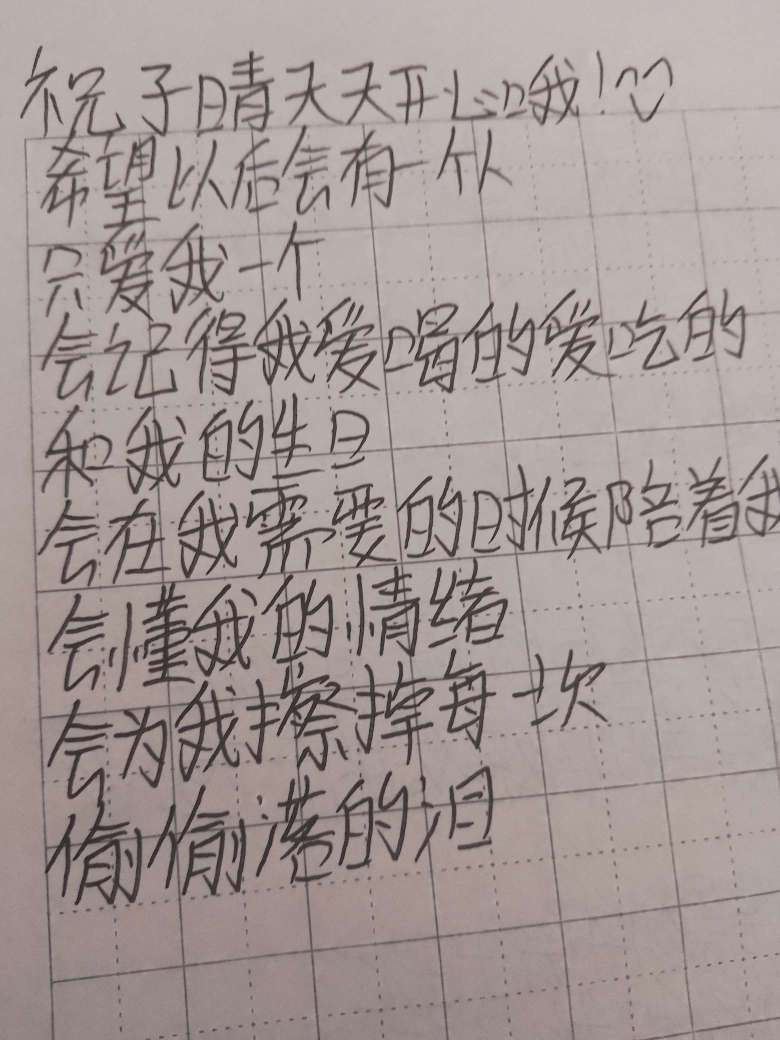 祝子晴天天开心哦!
希望以后会有一个人
只爱我一个
会记得我爱喝的爱吃的
和我的生日
会在我需要的时候陪着我
会懂我的情绪
会为我擦掉每一次
偷偷落的泪